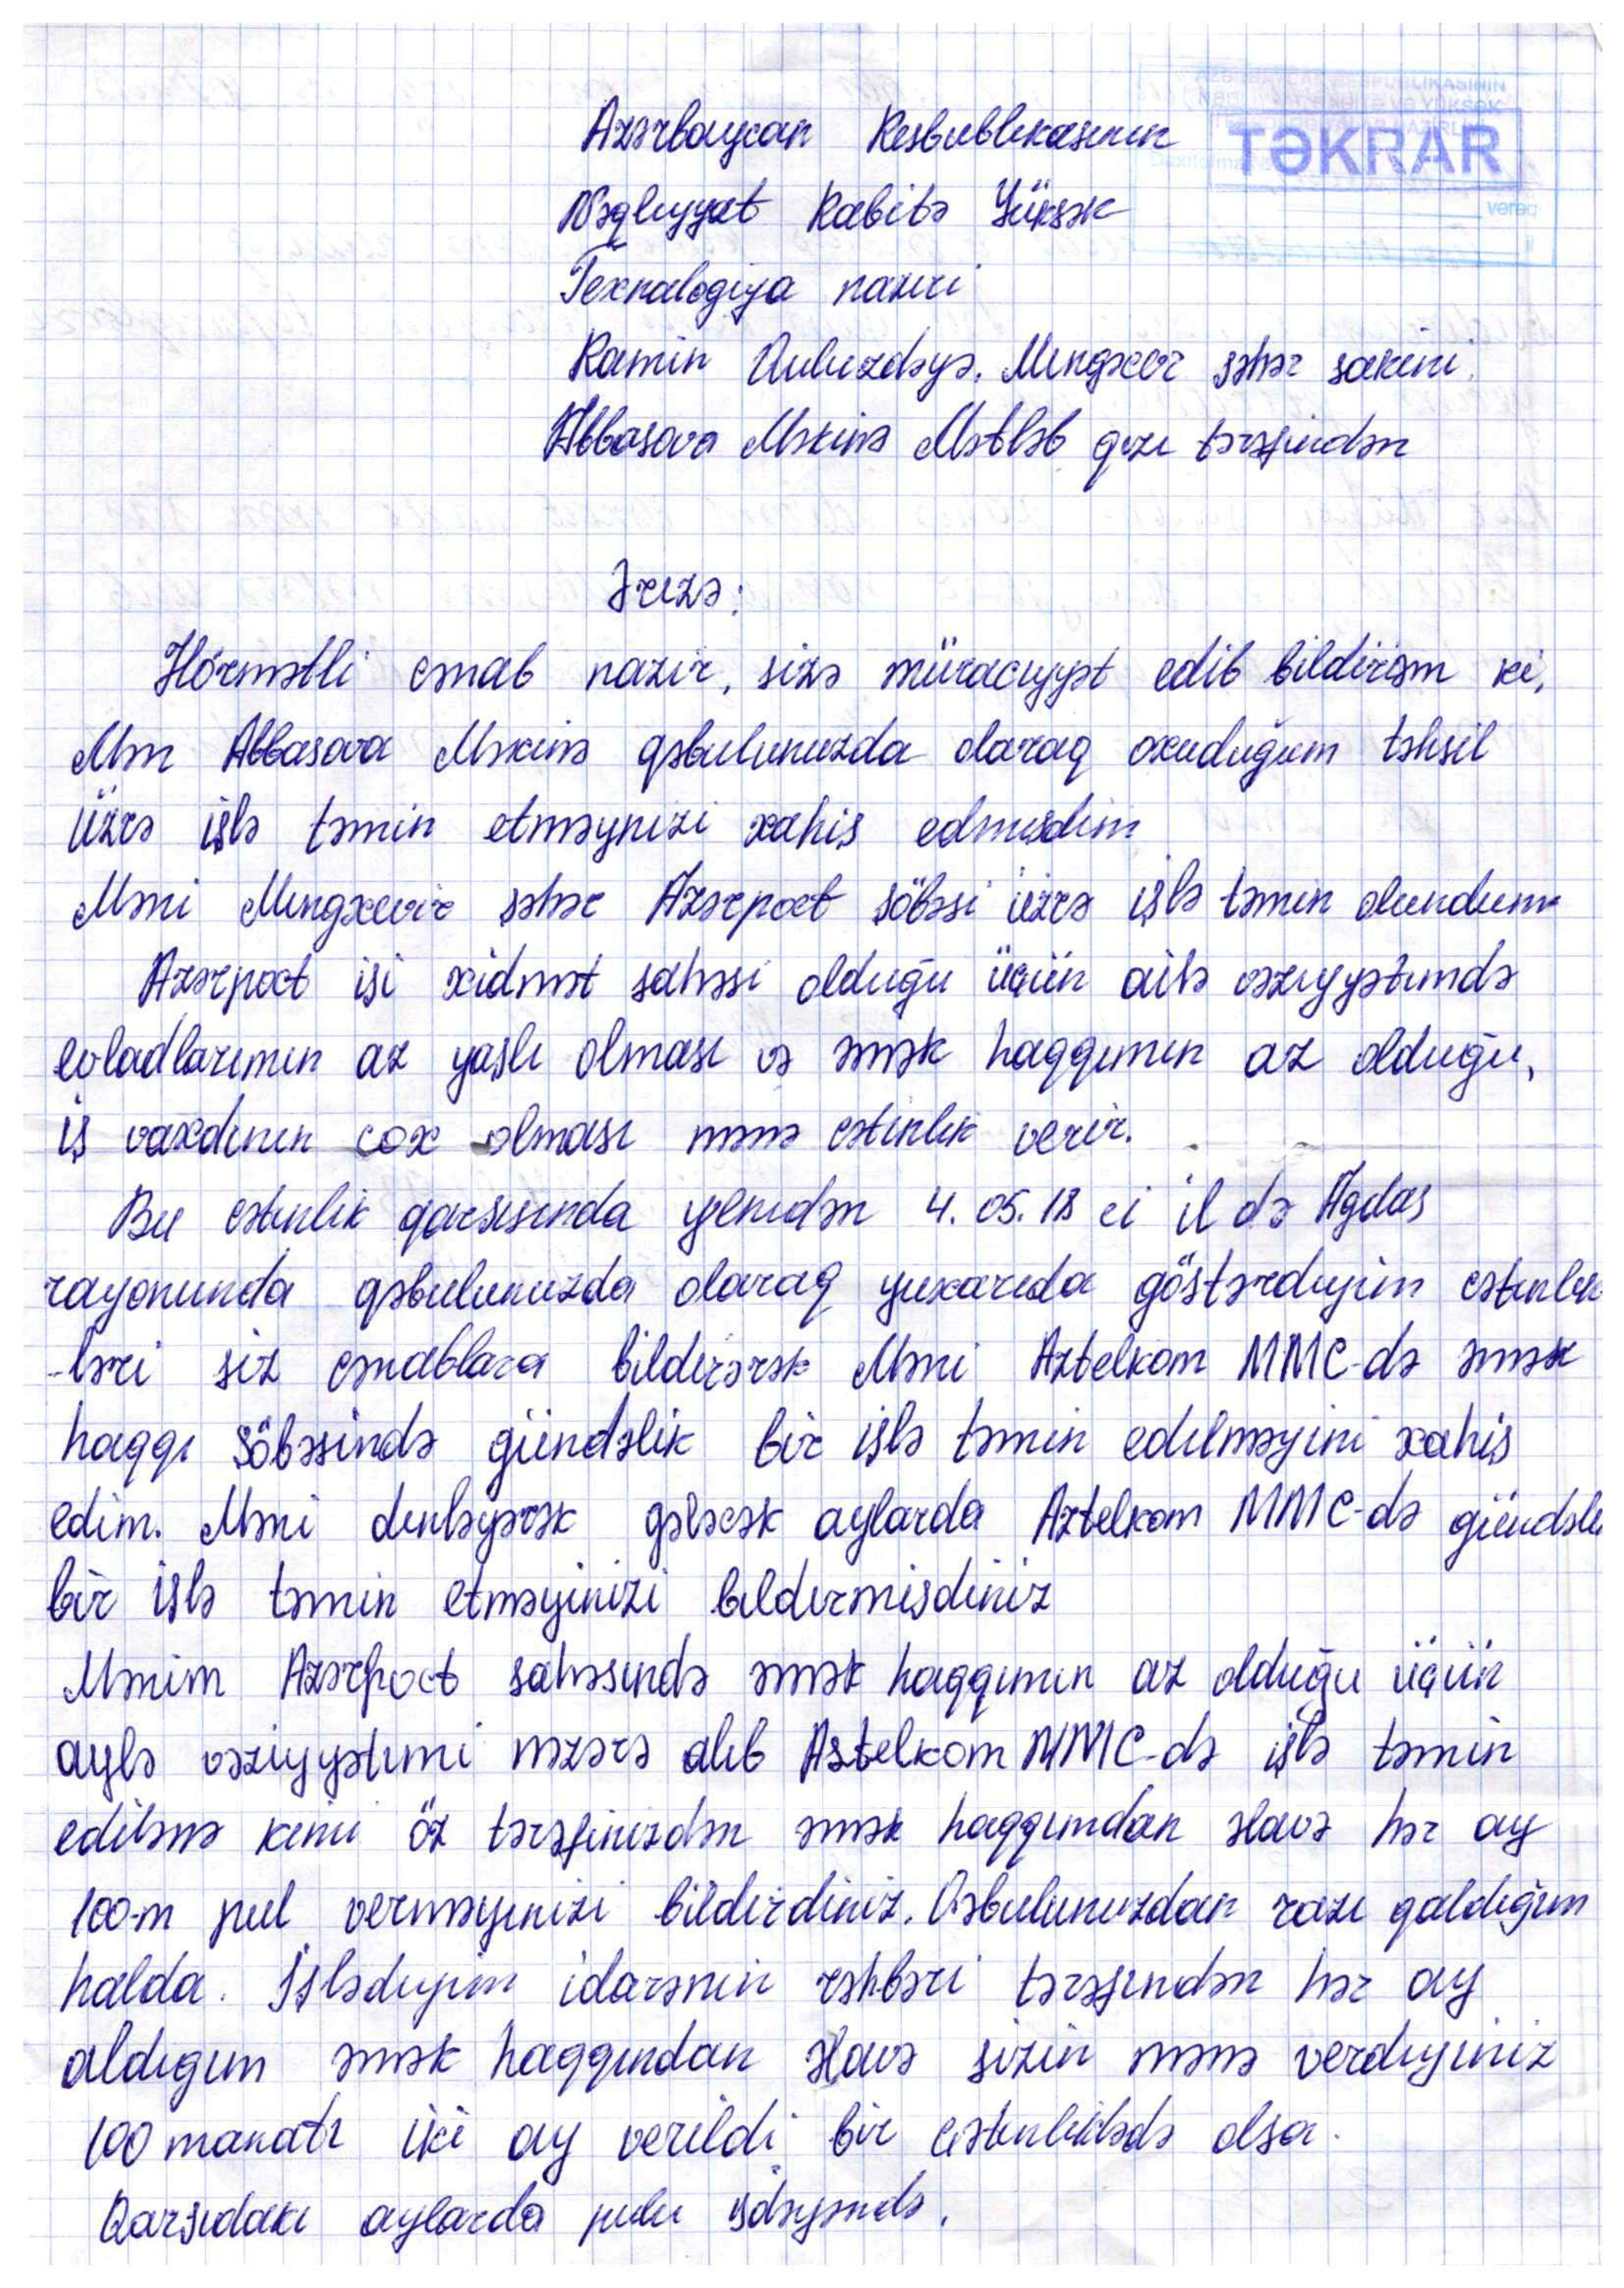 AZƏRBAYCAN RESPUBLİKASININ
VƏ YÜKSƏK
TƏKRAR
vərəq
Azərbaycan Resbublikasının
Nəqliyyat Rabitə Yüksək
Texnalogiya naziri
Ramin Quluzdəyə. Mingəcevr şəhər sakini
Abbasova Məkinə Mətləb qızı tərəfindən
Ərizə:
Hörmətli cənab nazir, sizə müraciyyət edib bildirirəm ki,
Mən Abbasova Məkinə qəbulunuzda olaraq oxuduğum təhsil
üzrə işlə təmin etməynizi xahiş edmişdim
Məni Mingəcevir şəhər Azərpoct şöbəsi üzrə işlə təmin olundum
Azərpoct işi xidmət sahəsi olduğu üçün ailə vəziyyətimdə
evladlarımın az yaşlı olması və əmək haqqımın az olduğu,
iş vaxdının cox olması mənə cətinlik verir.
Bu cətinlik qarşısında yenidən 4.05.18 ci il də Ağdaş
rayonunda qəbulunuzda olaraq yuxarıda göstərdiyim cətinlik
-ləri siz cənablara bildirərək Məni Aztelkom MMC-də əmək
haqqı şöbəsində gündəlik bir işlə təmin edilməyimi xahiş
edim. Məni dinləyərək gələcək aylarda Aztelkom MMC-də gündəli
bir işlə təmin etməyinizi bildirmişdiniz
Mənim Azərpoct sahəsində əmək haqqımın az olduğu üçün
aylə vəziyyətimi nəzərə alıb Aztelkom MMC-də işlə təmin
edilənə kimi öz tərəfinizdən əmək haqqımdan əlavə hər ay
100-m pul verməyinizi bildirdiniz. Qəbulunuzdan razı qaldığım
halda. İşlədiyim idarənin rəhbəri tərəfindən hər ay
aldıgım əmək haqqından əlavə sizin mənə verdiyiniz
100 manatı iki ay verildi bir cətinlikdədə olsa.
Qarşıdakı aylarda pulu